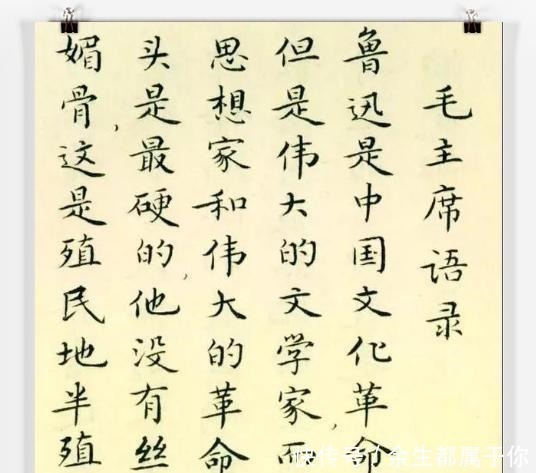 毛主席语录
鲁迅是中国文化革命
但是伟大的文学家,而
思想家和伟大的革命
头是最硬的,他没有丝
媚骨,这是殖民地半殖
快传号/余生都属于你